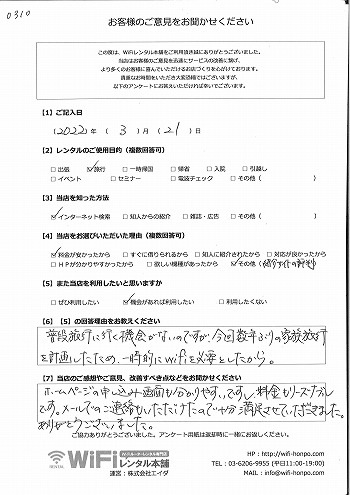 0310
お客様のご意見をお聞かせください
この度は、WiFiレンタル本舗をご利用頂き誠にありがとうございました。
当店はお客様のご意見を迅速にサービスの改善に繋げ、
より多くのお客様に喜んでいただけるお店づくりを心がけております。
貴重なお時間をいただき大変恐縮ではございますが、
以下のアンケートにお答えいただければ幸いでございます。
【1】ご記入日
(2022)年(3)月(21)日
【2】レンタルのご使用目的(複数回答可)
□出張 ☑旅行 □一時帰国 □帰省 □入院 □引越し
□イベント □セミナー □電波チェック □その他( )
【3】当店を知った方法
☑インターネット検索 □知人からの紹介 □雑誌・広告 □その他( )
【4】当店をお選びいただいた理由(複数回答可)
☑料金が安かったから □すぐに借りられるから □知人に紹介されたから □対応が良かったから
□HPが分かりやすかったから □欲しい機種があったから ☑その他(紹介サイトの評判)
【5】また当店を利用したいと思いますか
□ぜひ利用したい ☑機会があれば利用したい □利用したくない
【6】【5】の回答理由をお教えください
普段旅行に行く機会がないのですが、今回数年ぶりの家族旅行
を計画したため、一時的にwifiを必要としたから。
【7】当店のご感想やご意見、改善すべき点などをお聞かせください
ホームページの申し込み画面も分かりやすいですし、料金もリーズナブル
です。メールでのご連絡もいただけたので十分満足させていただきました。
ありがとうございました。
ご協力ありがとうございました。アンケート用紙は返却時に一緒にお返しください。
WiFiルーター レンタル専門店
RENTAL WiFi レンタル本舗
運営：株式会社エイダ
HP：http://wifi-honpo.com
TEL：03-6206-9955 (平日11:00-19:00)
MAIL：info@wifi-honpo.com